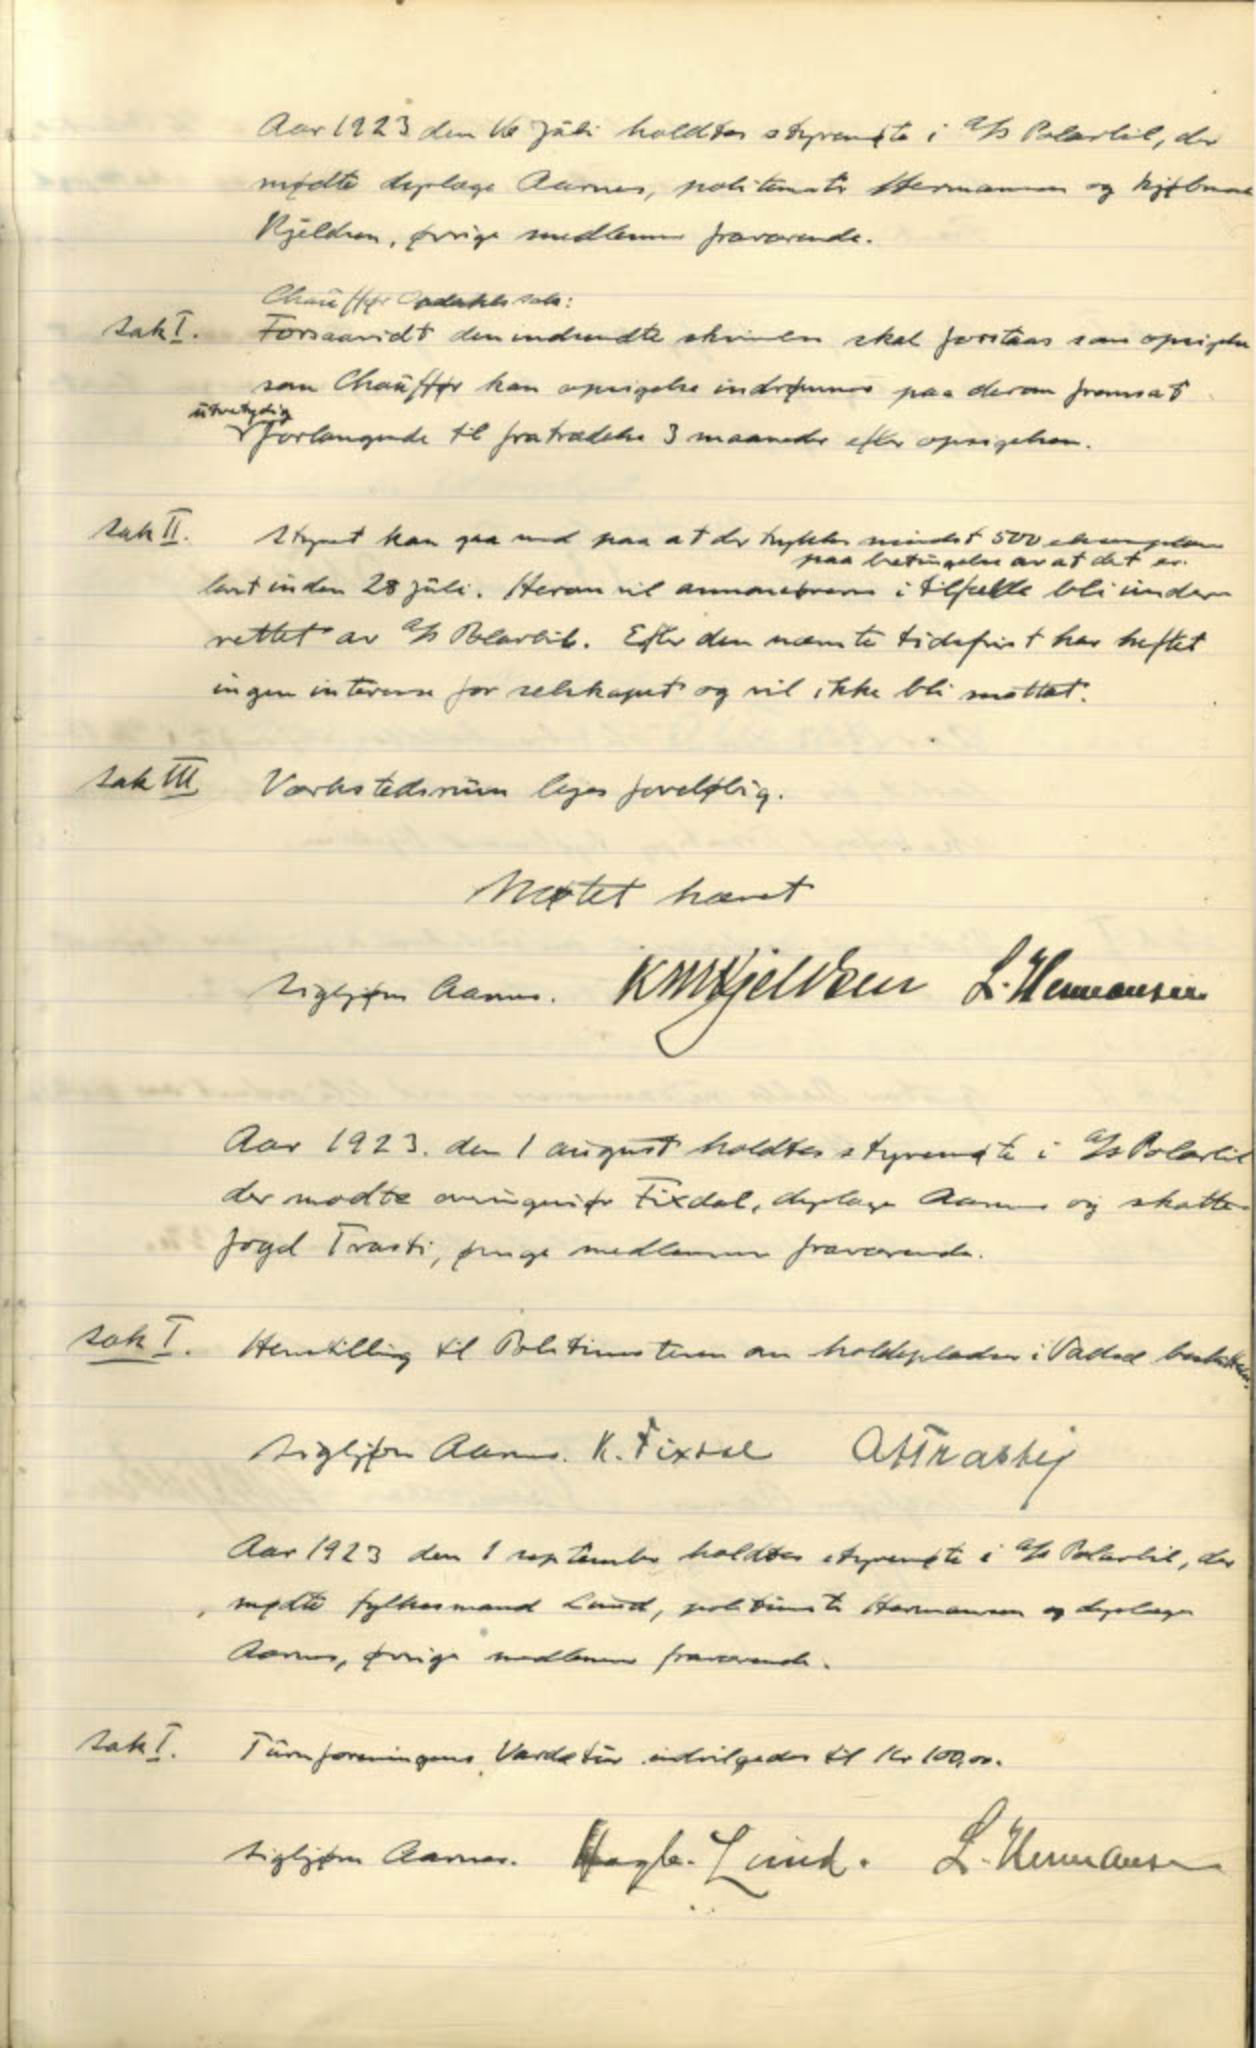 Aar 1923 den 16 juli holdtes styremøte i A/S Polarbil, der
mødte dyrlæge Aarnes, politimstr Hermansen og kjøbmand
Kjeldsen, øvrige medlemmer fraværende.
Chauffør sak:
Sak I. Forsaavidt den indsendte skrivelse skal forstaas som opsigelse
som Chauffør kan opsigelse indrømmes paa derom fremsat
utvetydig
forlangende til fratrædelse 3 maaneder efter opsigelsen.
Sak II. Styret kan gaa med paa at der trykkes mindst 500 eksemplarer
paa betingelse av at det er
levert inden 28 juli. Herom vil annonsørerne i tilfælde bli under-
rettet av A/S Polarbil. Efter den nævnte tidsfrist har heftet
ingen interesse for selskapet og vil ikke bli mottat.
Sak III Verkstedsrum leges foreløbig.
Møtet hævet
Sigbjørn Aarnes. K M Kjeldsen L. Hermansen
Aar 1923. den 1 august holdtes styremøte i A/S Polarbil
der mødte avd.ingeniør Fixdal, dyrlæge Aarnes og skatte-
fogd Trasti, øvrige medlemmer fraværende.
Sak I. Henstilling til Politimesteren om holdepladser i Vadsø besluttedes.
Sigbjørn Aarnes. K. Fixdal A Trasti
Aar 1923 den 1 september holdtes styremøte i A/S Polarbil, der
mødte fylkesmand Lund, politimstr Hermansen og dyrlæge
Aarnes, øvrige medlemmer fraværende.
Sak I. Turnforeningens Vardøtur indvilgedes til Kr 100,00.
Sigbjørn Aarnes. Hagb. Lund. L. Hermansen